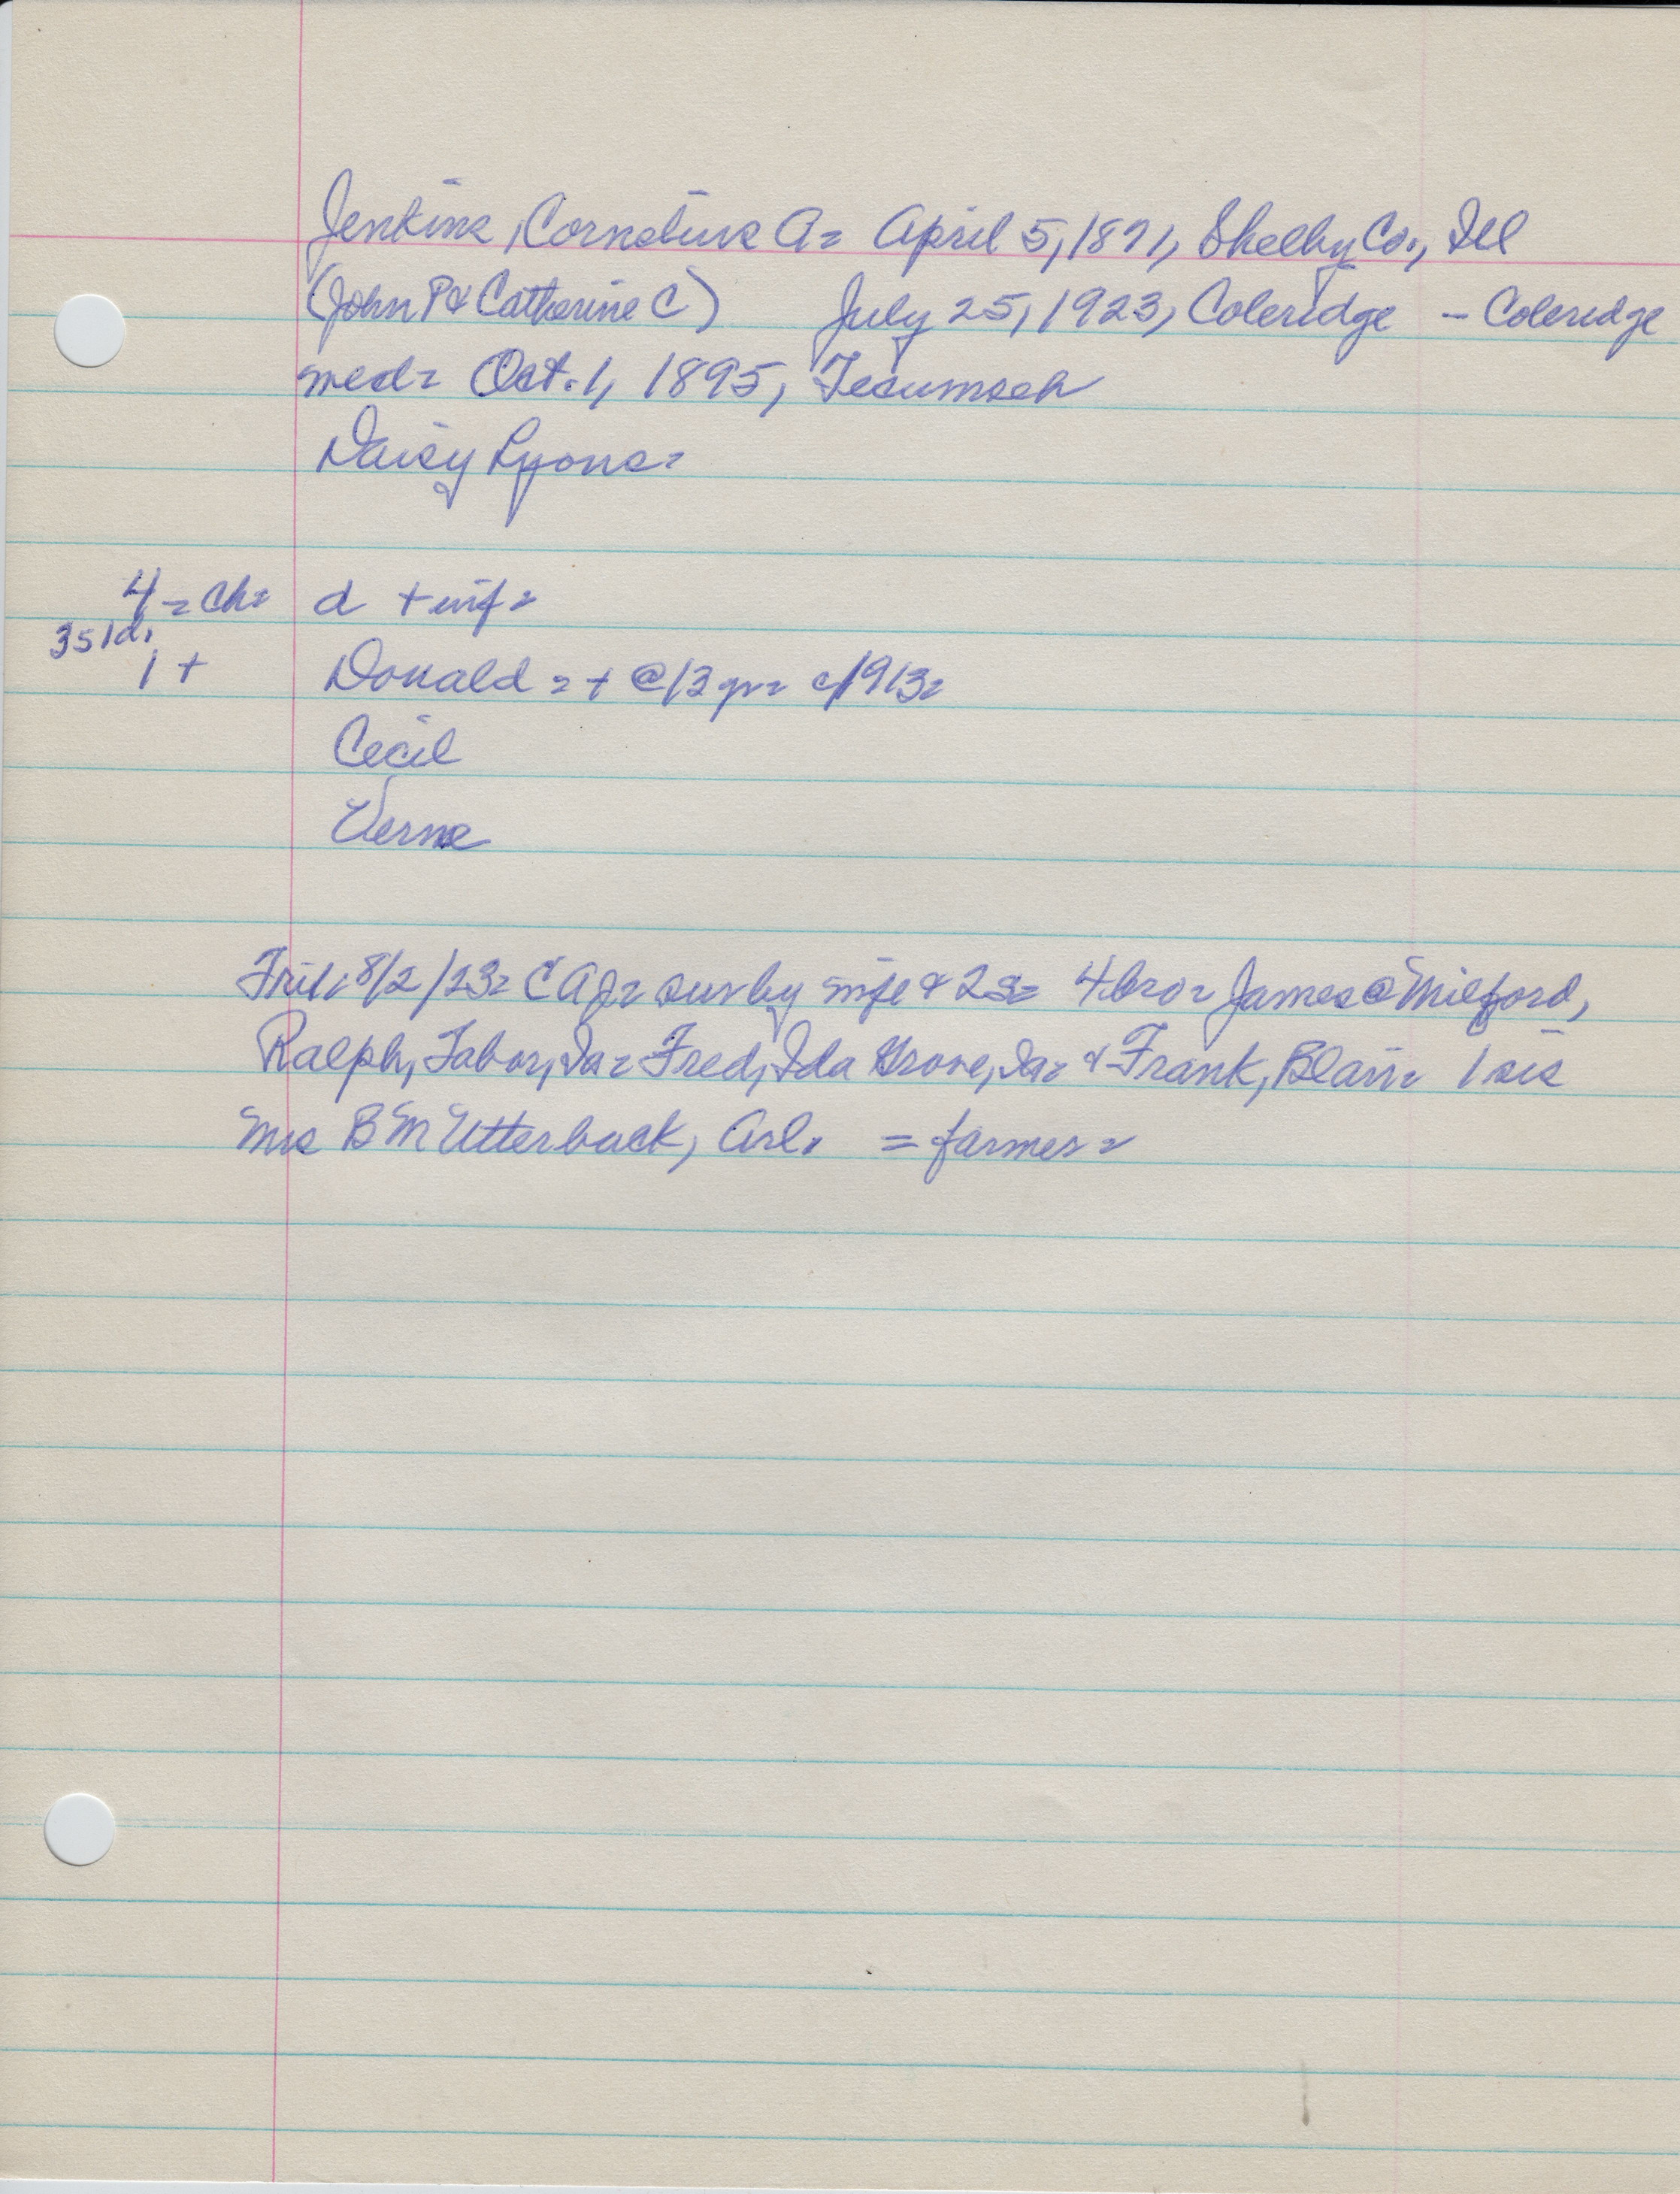 Jenkins, Cornelius A= April 5, 1871, Shelby Co., Ill
(John P & Catherine C) July 25, 1923, Coleridge - Coleridge
med= Oct. 1, 1895, Tecumseh
Daisy Lyons=
4 = ch= d + inf=
3s 1d,
1 + Donald = + @ 13 yr= c/1913=
Cecil
Verne
Trib, 8/2/23= C A J= sur by wife & 2s= 4 bro= James @ Milford,
Ralph, Tabor, Ia= Fred, Ida Grove, Ia= & Frank, Blair= 1 sis
Mrs B M Utterback, Arl. = farmer=